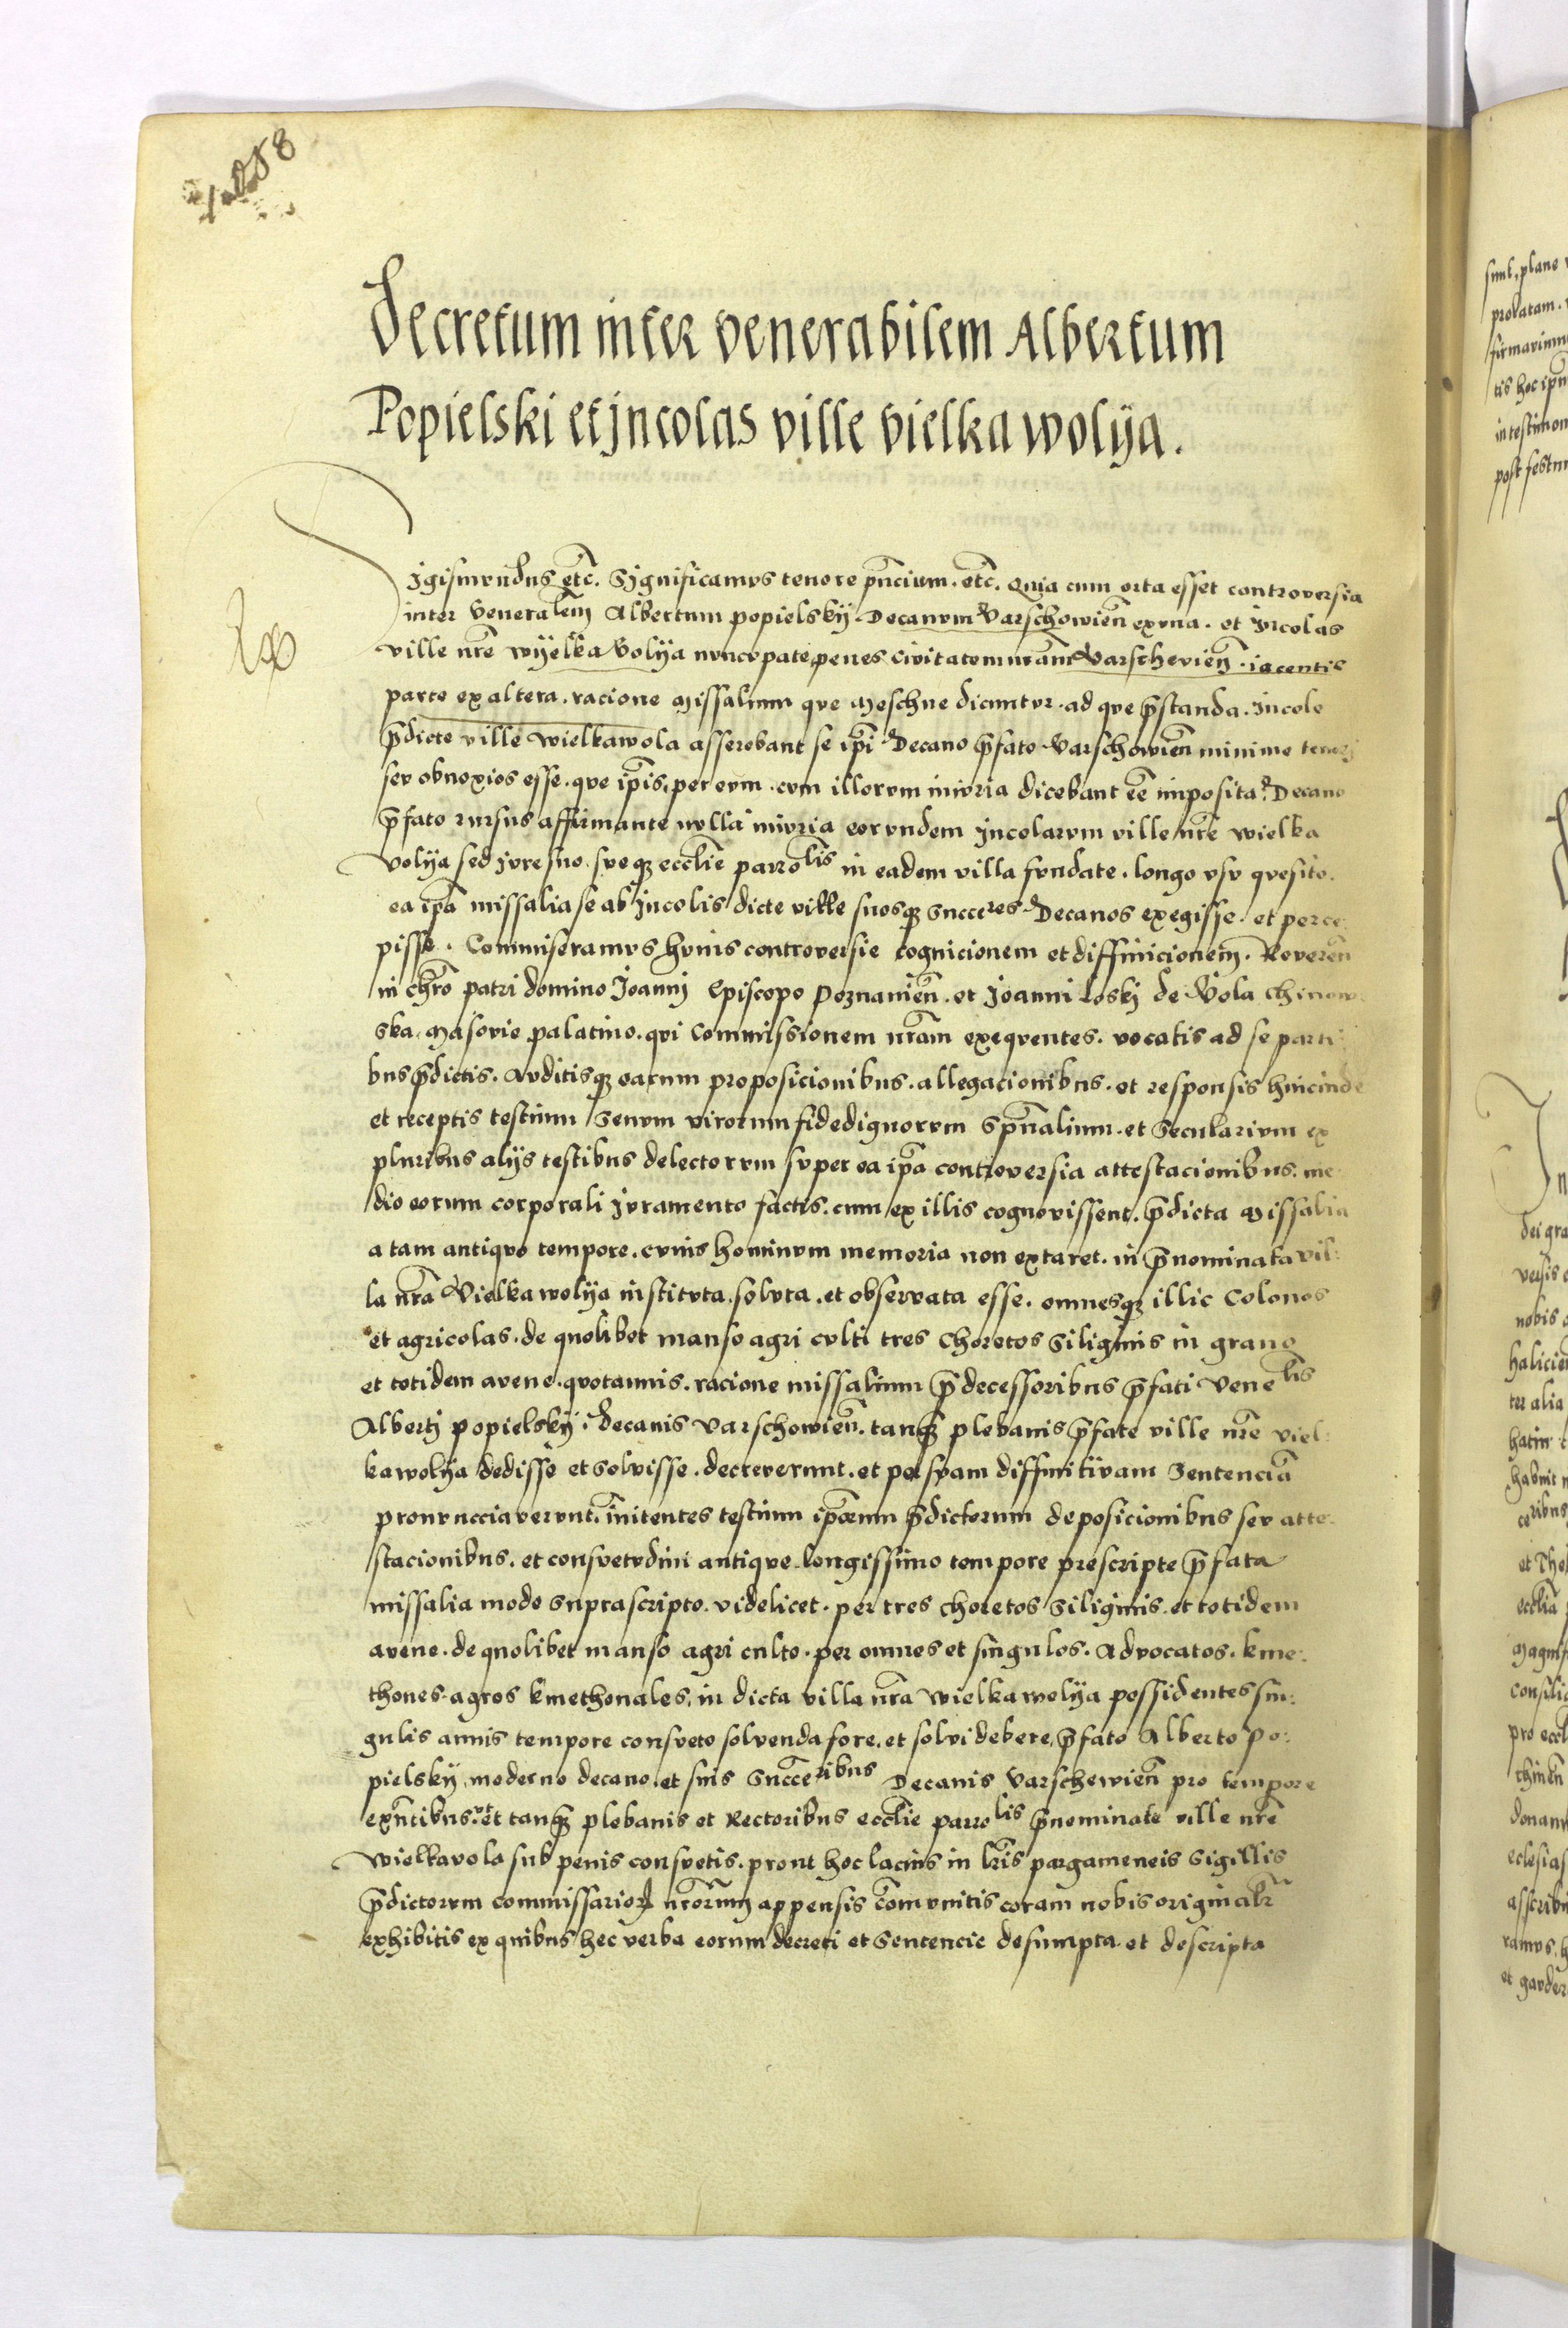 Decretum inter venerabilem Albertum
Popielski et Jncolas ville vielka wolÿa.
Sigismundus etc̃. Significamus tenore pñcium. etc̃. Quia cum orta esset controversia
inter Veneralem̃ Albertum popielskÿ. Decanum Varschowieñ ex una. et Jncolas
ville nr̃e wÿelka Volÿa nuncupate penes civitatem nram̃ Varschevieñ. iacentis
parte ex altera. racione Missalium que Meschne dicuntur. ad que p̃standa. Jncole
p̃dicte ville wielkawola asserebant se ip̃i Decano p̃fato Varschowieñ minime teneri
seu obnoxios esse. que ip̃is, per eum. cum illorum iniuria dicebant eẽ imposita. Decano
p̃fato rursus affirmante nulla iniuria eorundem Jncolarum ville nr̃e wielka
Volÿa sed jure suo. sueqꝫ eccl̃ie parrolis in eadem villa fundate. longo usu quesito.
ea ip̃a missalia se ab Jncolis dicte ville suosqꝫ succeres Decanos exegisse. et perce
pisse. Commiseramus huius controversie cognicionem et diffinicionem. Revereñ
in chr̃o patri domino Joannj Episcopo Poznanieñ. et Joanni Loskj de Vola Chinow
ska Masovie palatino. qui Commissionem nram̃ exequentes. vocatis ad se parti
bus p̃dictis. Auditisqꝫ earum proposicionibus. allegacionibus. et responsis hincinde
et receptis testium Senum virorum fidedignorum Spũalium. et Secularium ex
pluribus alÿs testibus delectorum super ea ip̃a controversia attestacionibus. me
dio eorum corporali juramento factis. cum ex illis cognovissent. p̃dicta Missalia
a tam antiquo tempore. cuius hominum memoria non extaret. in p̃nominata vil:
la nr̃a Vielka wolÿa instituta. soluta. et observata esse. omnesqꝫ illic Colonos
et agricolas. de quolibet manso agri culti tres Choretos Siliginis in grano
et totidem avene. quotannis. racione missalium p̃decessoribus p̃fati Venelis
Albertj popielskÿ. decanis Varschowieñ. tanqꝫ plebanis p̃fate ville nr̃e viel
kawolÿa dedisse et solvisse. decreverunt. et per suam diffinitivam Sentenciã
pronuncciaverunt. innitentes testium ip̃orum p̃dictorum deposicionibus seu atte
stacionibus. et consuetudini antique longissimo tempore prescripte p̃fata
missalia modo suprascripto. videlicet. per tres choretos Siliginis. et totidem
avene. de quolibet manso agri culto. per omnes et singulos. Advocatos. kme:
thones. agros kmethonales. in dicta villa nr̃a wielkawolÿa possidentes sin:
gulis annis tempore consueto solvenda fore. et solvi debere, p̃fato Alberto Po:
pielskÿ, moderno decano. et suis Succeribus Decanis Varschewieñ pro tempore
exñtibus. et tanqꝫ plebanis et Rectoribus eccl̃ie parrolis p̃nominate ville nr̃e
wielkavola sub penis consuetis. pront hoc lacius in lr̃is pargameneis Sigillis
p̃dictorum commissarioꝝ nr̃orum appensis com̃unitis coram nobis originalr̃
exhibitis ex quibus hec verba eorum decreti et Sentencie desumpta. et descripta